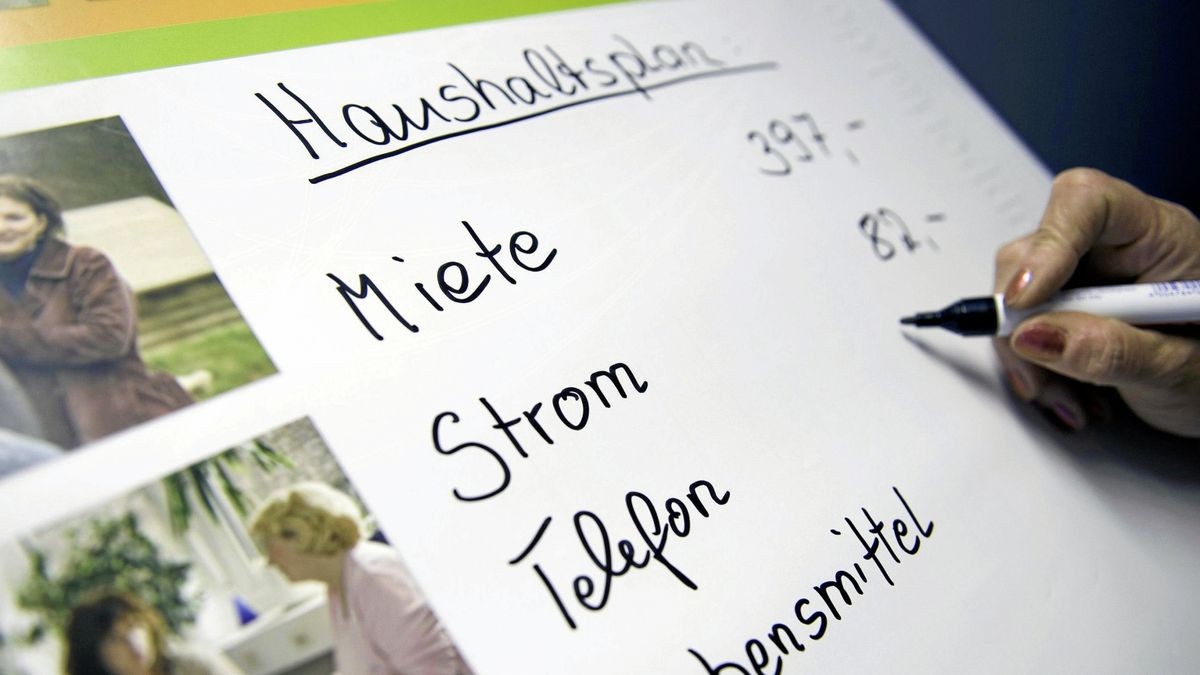 Haushaltsplan:
Miete 397,-
Strom 82,-
Telefon
bensmittel